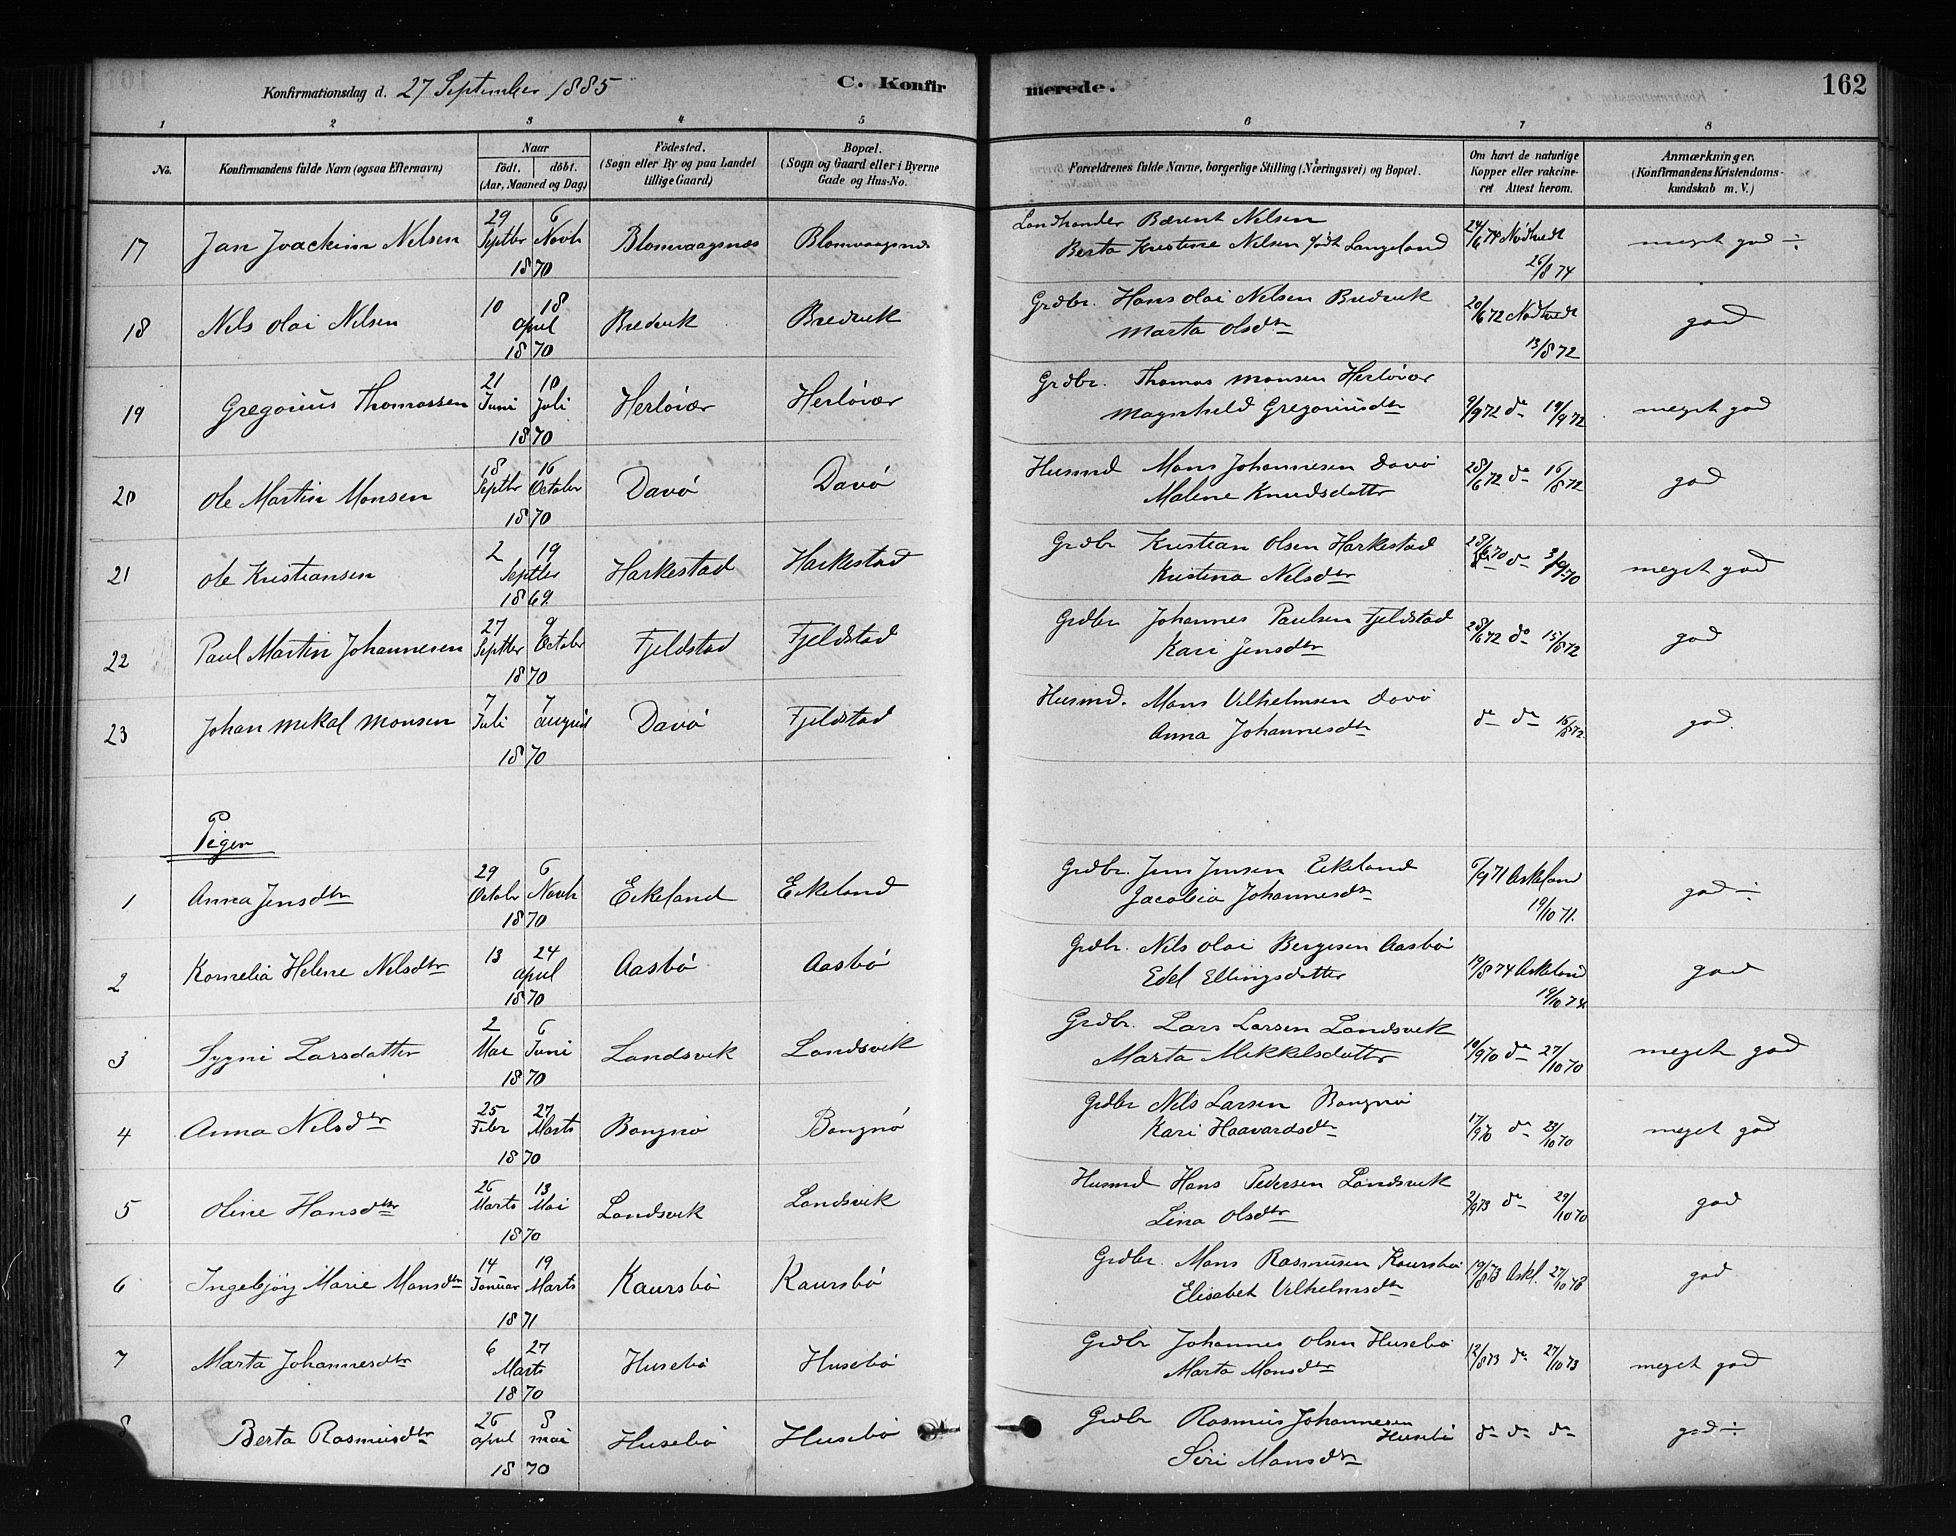 Konfirmationsdag d. 27 September 1885 C. Konfirmerede. 162
1 2 3 4 5 6 7 8
No. Konfirmandens fulde Navn (ogsaa Efternavn) Naar født. døbt. (Aar, Maaned og Dag) Fødested. (Sogn eller By og paa Landet tillige Gaard) Bopæl. (Sogn og Gaard eller i Byerne Gade og Hus-No. Forældrenes fulde Navne, borgerlige Stilling (Næringsvei) og Bopæl. Om havt de naturlige Kopper eller vakcineret. Attest herom. Anmærkninger. (Konfirmandens Kristendomskundskab m. V.)
17 Jan Joachim Nelsen 29 Septbr 6 Novb 1870 Blomvaagsnæs Blomvaagsnæs Landhandler Bærent Nelsen
Berta Kristine Nelsen født Langeland 24/6 74 Nodtvedt 26/8 74 meget god ÷
18 Nels Olai Nelsen 10 18 april 1870 Bredvik Bredvik Grdbr. Hans Olai Nelsen Bredvik
Marta Olsdtr 20/6 72 Nodtvedt 13/8 72 god
19 Gregorius Thomassen 21 Juni 10 Juli 1870 Herløvær Herløvær Grdbr. Thomas Monsen Herløvær
Magnhild Gregoriusdtr 9/9 72 do 19/9 72 meget god
20 Ole Martin Monsen 18 Septbr 16 October 1870 Davø Davø Husmd Mons Johannesen Davø
Malene Knudsdatter 28/6 72 do 16/8 72 god
21 Ole Kristiansen 2 19 Septbr 1869 Harkestad Harkestad Grdbr Kristian Olsen Harkestad
Kristina Nelsdtr do meget god
22 Paul Martin Johannesen 27 Septbr 9 October 1870 Fjeldstad Fjeldstad Grdbr Johannes Paulsen Fjeldstad
Kari Jensdtr 28/6 72 do 15/8 72 god
23 Johan Mikal Monsen 7 Juli 7 august 1870 Davø Fjeldstad Husmd. Mons Vilhelmsen Davø
Anna Johannesdtr do do 16/8 72 god.
Piger
1 Anna Jensdtr 29 October 6 Novb 1870 Eikeland Eikeland Grdbr. Jens Jensen Eikeland
Jacobia Johannesdtr 6/9 71 Askeland 19/10 71. god ÷
2 Kornelia Helene Nelsdtr 13 24 april 1870 Aasbø Aasbø Grdbr. Nils Olai Bergesen Aasbø
Edel Ellingsdatter 19/8 74 Askeland 19/10 74 god
3 Sygni Larsdatter 2 Mai 6 Juni 1870 Landsvik Landsvik Grdbr. Lars Larsen Landsvik
Marta Mikkelsdatter 10/9 70 do 27/10 70 meget god
4 Anna Nelsdtr 25 Febr 27 Marts 1870 Bongnø Bongnø Grdbr Nils Larsen Bongnø
Kari Haavardsdtr 17/9 70 do 28/10 70 meget god
5 Oline Hansdtr 26 Marts 13 Mai 1870 Landsvik Landsvik Husmd Hans Pedersen Landsvik
Lina Olsdtr 2/9 73 do 29/10 70 god
6 Ingebjøry Marie Monsdtr 14 Januar 19 Marts 1871 Kaursbø Kaursbø Grdbr. Mons Rasmusen Kaursbø
Elisabet Vilhelmsdtr 19/8 73 Askl. 27/10 78 god
7 Marta Johannesdtr 6 27 Marts 1870 Husebø Husebø Grdbr Johannes Olsen Husebø
Marta Monsdtr 12/8 73 do 27/10 73 meget god
8 Berta Rasmusdtr 26 april 8 mai 1870 Husebø Husebø Grdbr Rasmus Johannesen Husebø
Siri Monsdtr do do do god ÷